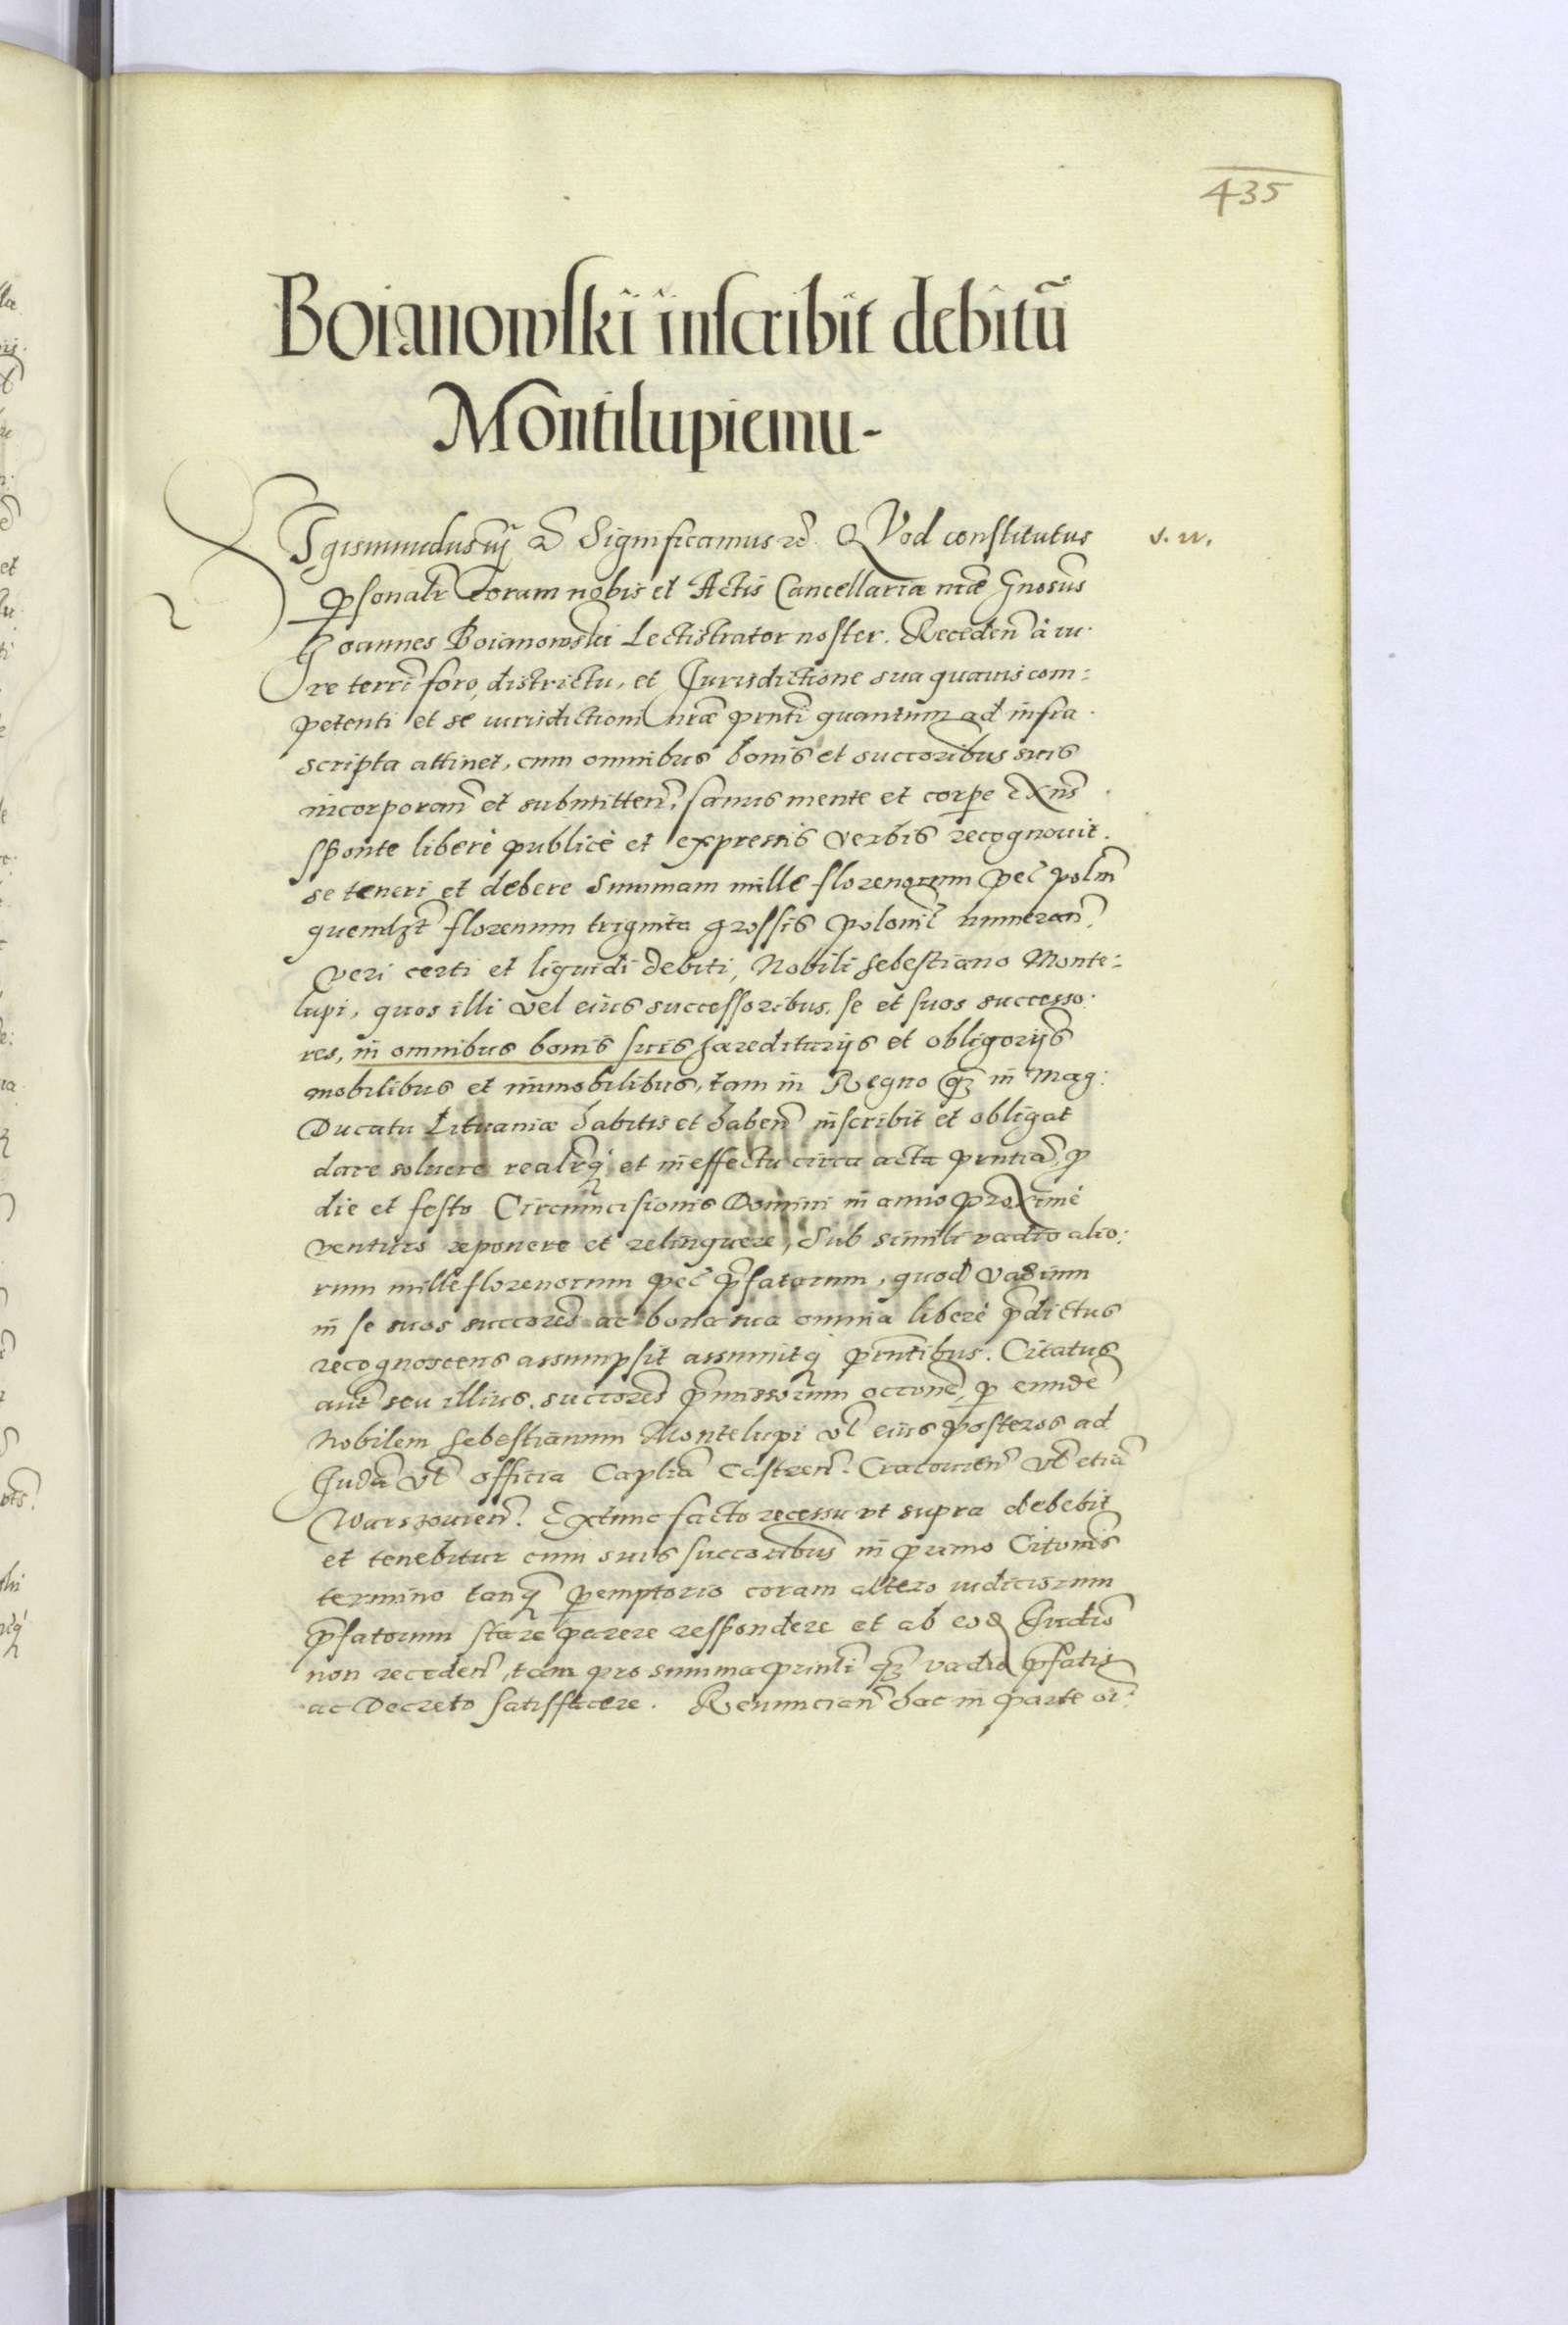 435
Boianowski inscribit debitū
Montilupiemu-
Sigismundus iij ... Significamus ... QVod constitutus s. w.
psonalr Coram nobis et Actis Cancellariæ nræ Gnosus
Joannes Boianowski Lectistrator noster. Receden à iu.
re terri foro, districtu, et Jurisdictione sua quauis com:
petenti et se iurisdictioni nræ prnti quantum ad infra.
scripta attinet, cum omnibus bonis et succoribus suis
incorporan et submitten, sanus mente et corpe exns
sponte liberè publicè et expressis verbis recognouit.
se teneri et debere Summam mille florenorum pec polni
quemlzt florenum triginta grossis polonil numeran
veri certi et liquidi debiti, Nobili Sebestiano Monte:
lupi, quos illi vel eius successoribus, se et suos successo:
res, in omnibus bonis suis hæredituriis et obligorijs
mobilibus et immobilibus, tam in Regno qz in Mag:
Ducatu Lituaniæ habitis et haben inscribit et obligat
dare soluere realrq et in effectu circa acta prntia, p
die et festo Circumcisionis Domini in anno proximè
venturo reponere et relinquere, Sub simili vadio alio:
rum mille florenorum pec pfatorum, quod vadium
in se suos succores ac bona sua omnia liberè pdictus
recognoscens assumpsit assumitq prntibus. Citatus
aut seu illius succores pmissorum occone, p eundē
Nobilem Sebestianum Montelupi vl eius posteros ad
Judia vl officia Caplia Castren. Cracouien vl etiā
Warszouien. Extunc facto recessu vt supra debebit
et tenebitur cum suis succoribus in primo Citonis
termino tanq pemptorio coram altero iudiciorum
pfatorum stare parere respondere et ab eod Judio
non receden, tam pro summa prinli qz vadio pfatis
ac Decreto satisfacere. Renuncian hac in parte oi: